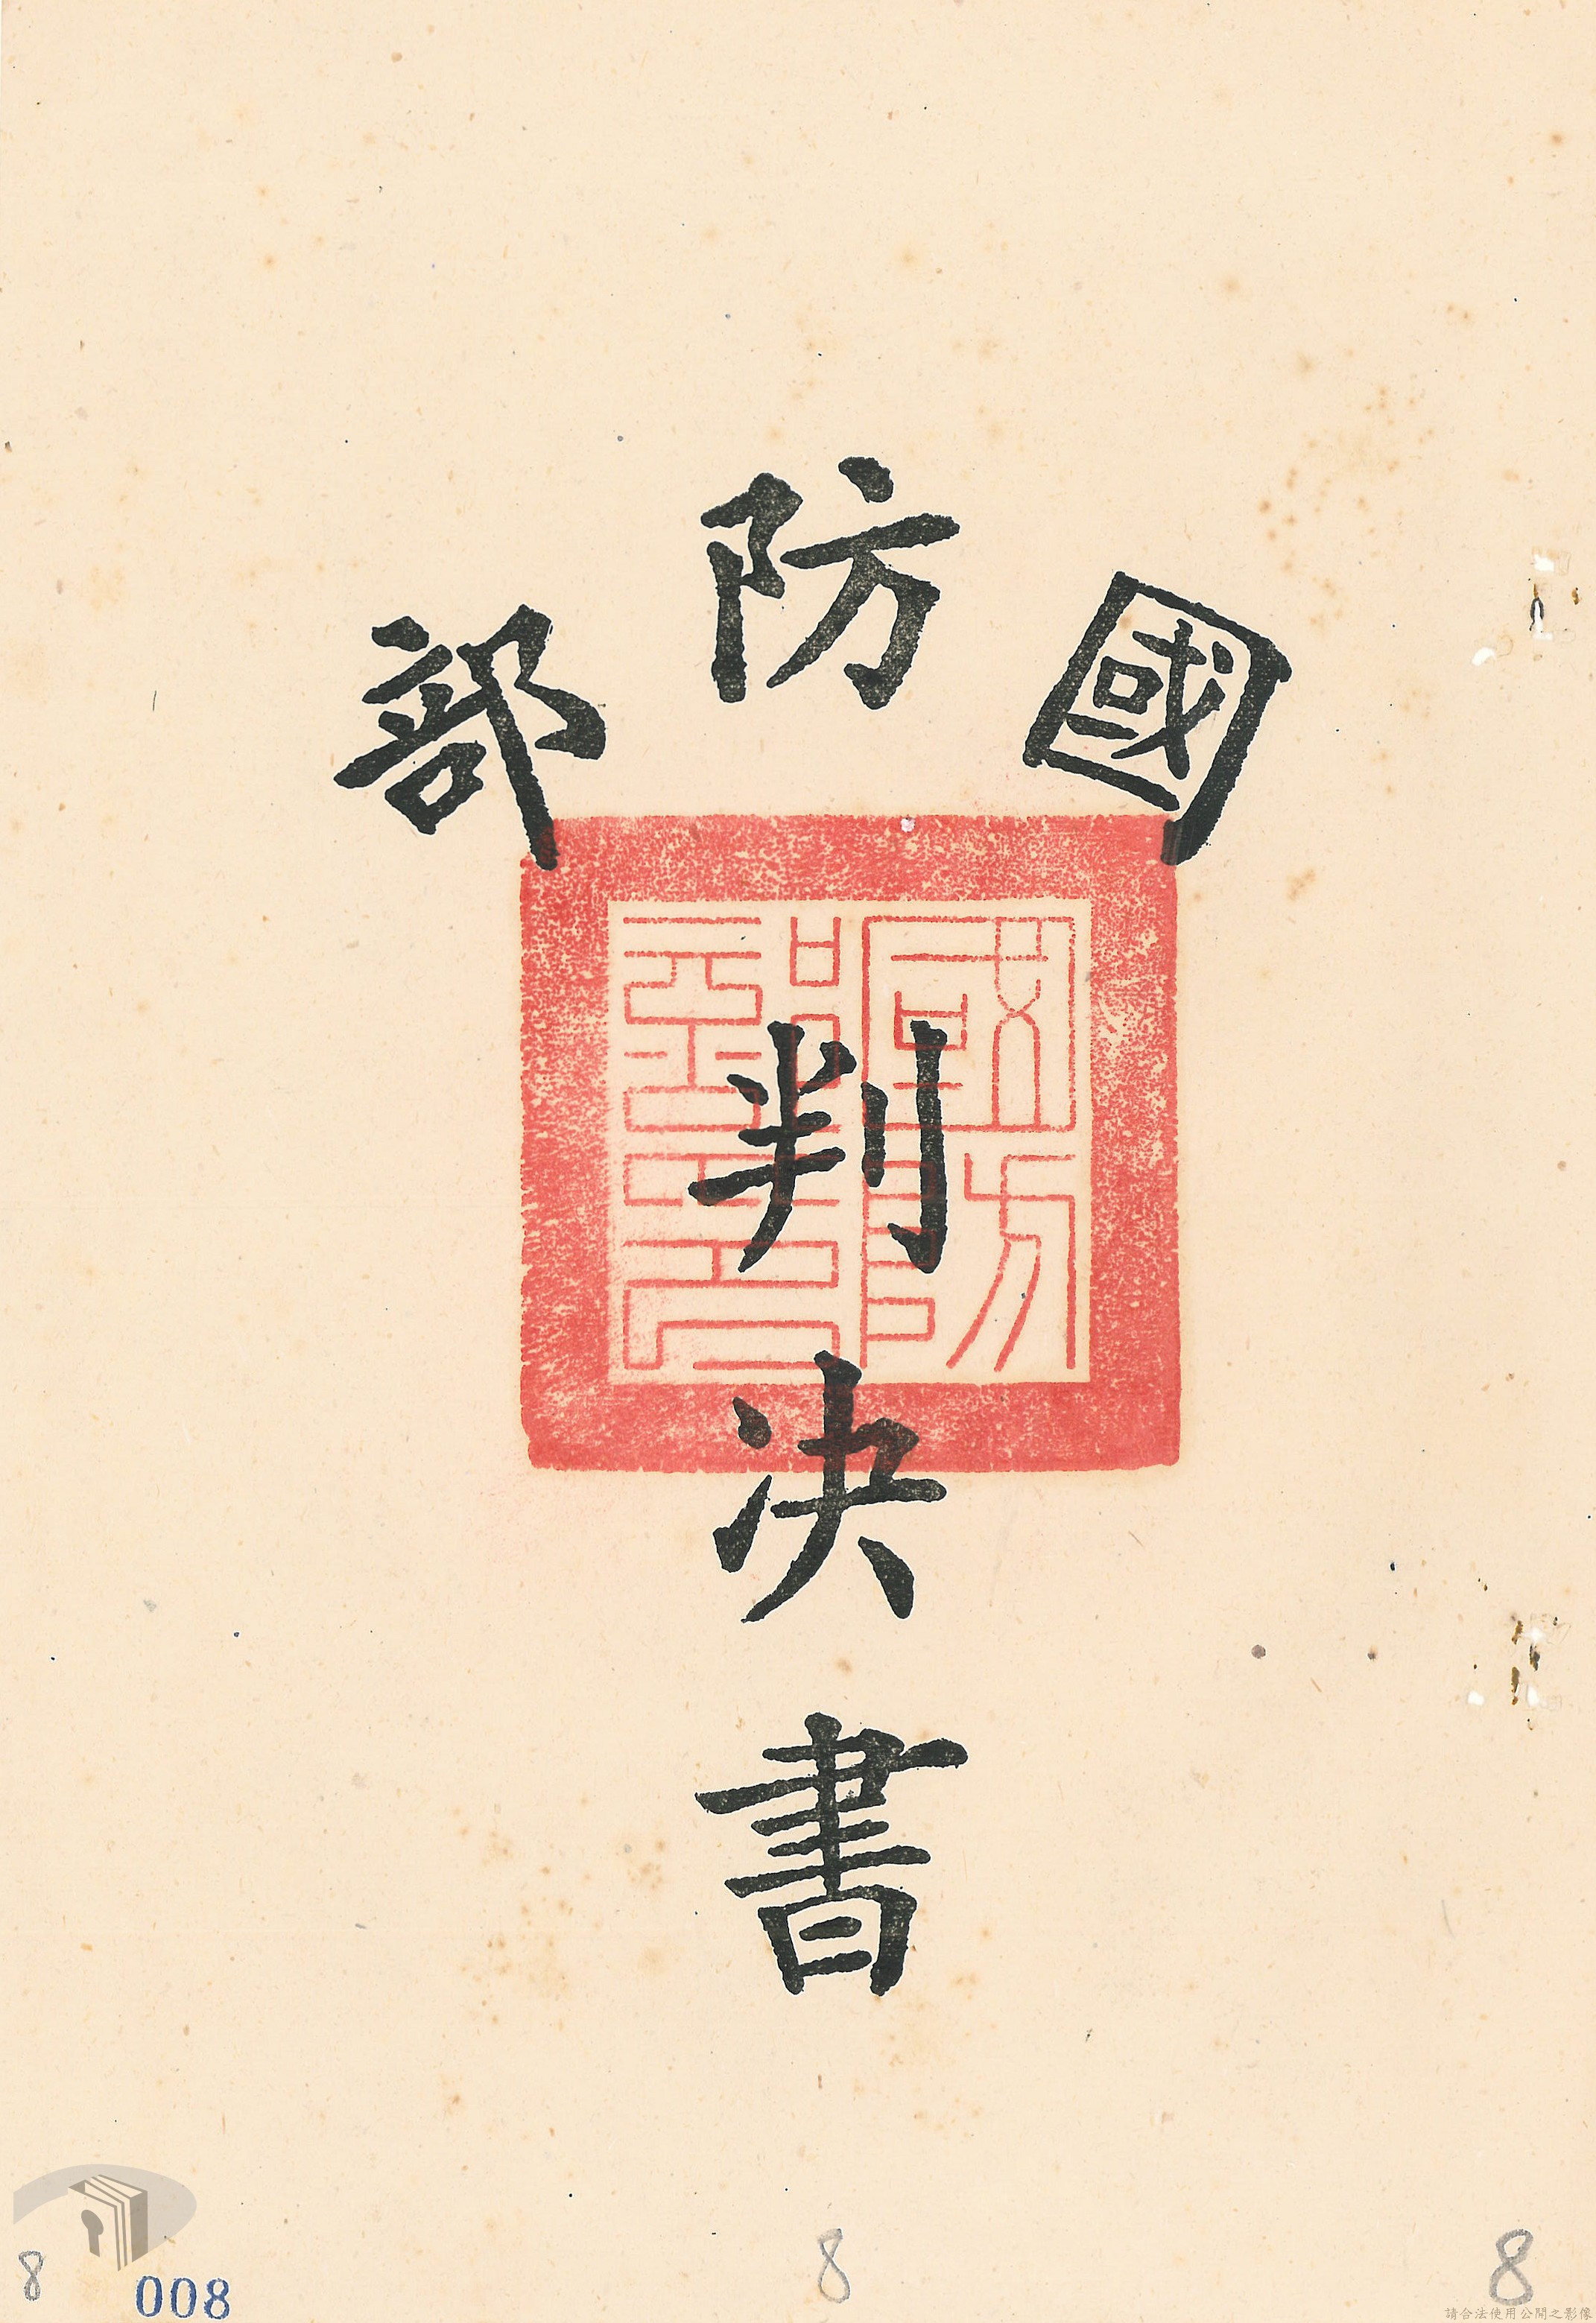 國防部
判決書
國防部印
8
008
8
8
請合法使用公開之影像